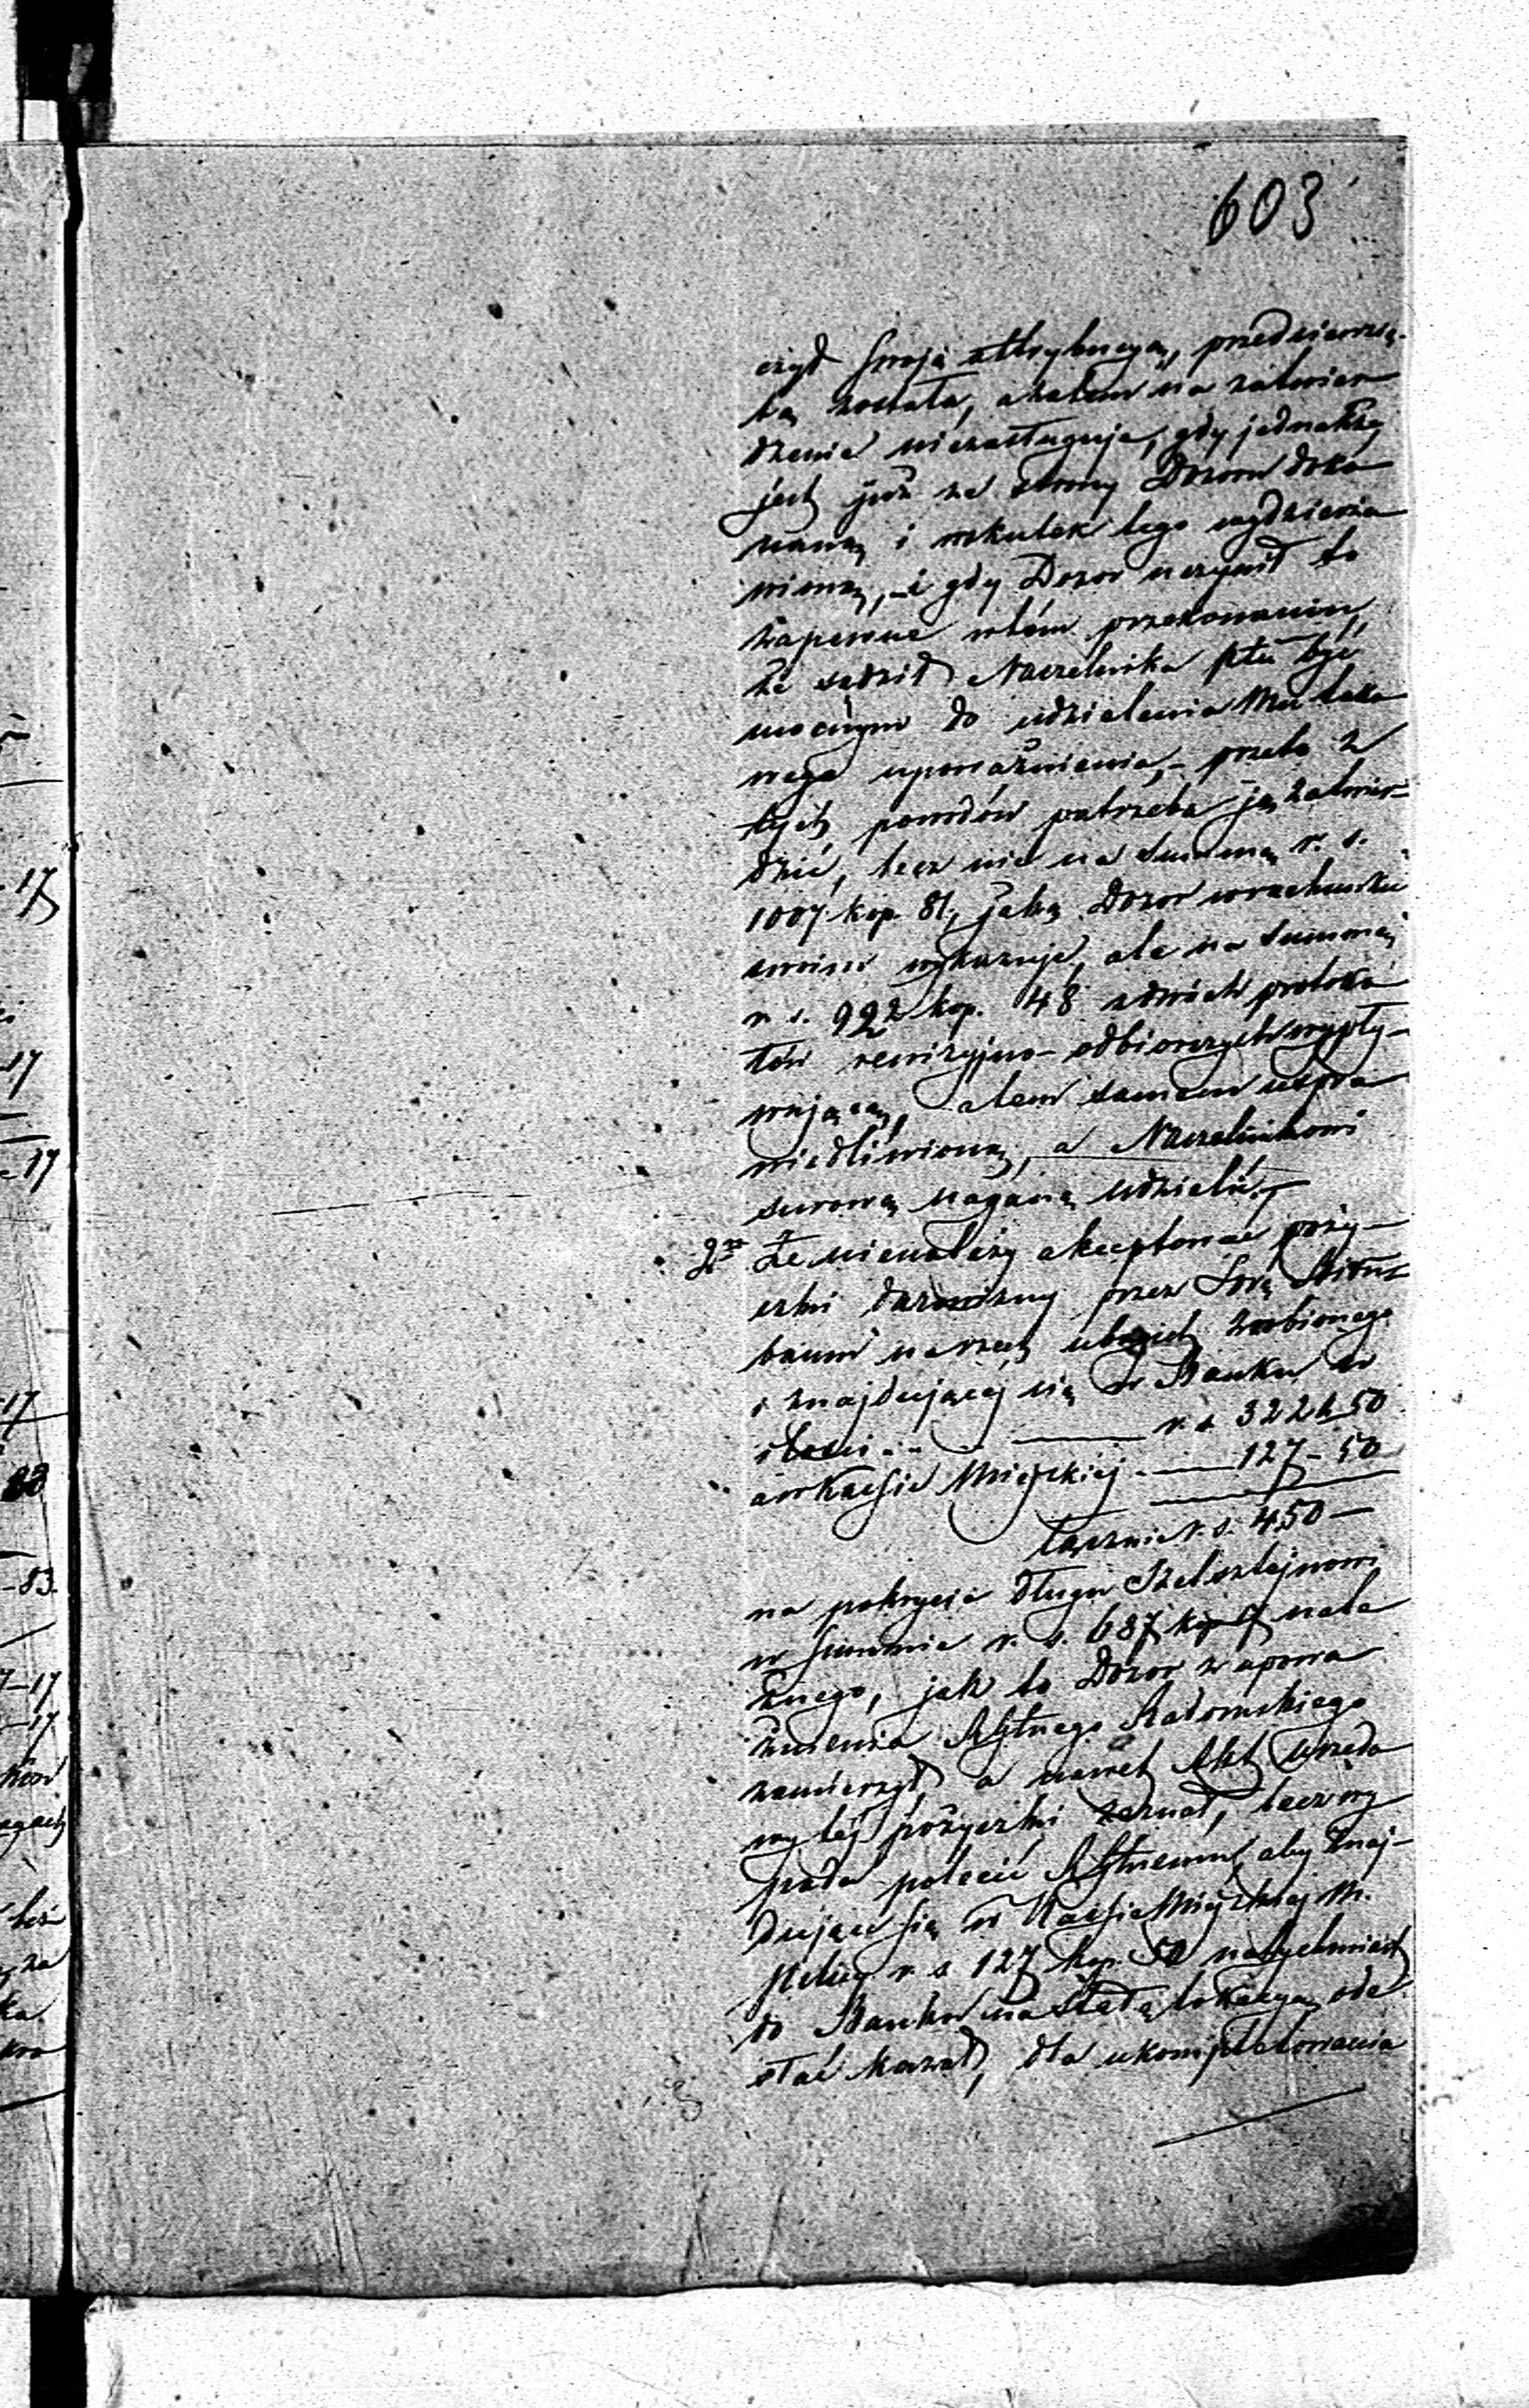 603
czyd swoją attrybucyą, przedsiewzię-
tą została, a zatem na zatwier
dzenie niezasługuje, gdy jednakże
jest już ze strony Dozoru doko
naną i wskutek tego wydzierża
wioną, – i gdy Dozor uczynił to
zapewne w tém przekonaniu,
że sądził Naczelnika Ptu być
mocnym do udzielenia Mu tako
wego upoważnienia, – przeto z
tych powodów potrzeba ją zatwier-
dzić, lecz nie na summę r. s.
1007 kop. 81, jaką Dozor w rachunku
swoim wykazuje, ale na summę
r. s. 992 kop. 48 z dwóch protoko
łów rewizyjno-odbiorczych wypły-
wającą, a tem samem uspra
wiedliwioną, a Naczelnikowi
surową naganę udzielić. –
2re Że nienależy akceptować poży-
czki darowizny przez
na rzecz ubogich zrobionego
i znajdującej się w Banku w
ilości r. s. 322 k 50
a w Kassie Miejskiej 127 – 50
łącznie r. s. 450 –
na pokrycie długu Szelsztejnowi
w summie r. s. 687 kop nale
żnego, jak to Dozor z upowa
żnienia Radomskiego
zamierzył, a nawet Akt urzędo
wy téj pożyczki zeznał, lecz wy
pada polecić aby znaj-
dujące się w Kassie Miejskiej M.
r. s 127 kop. 50 natychmiast
do Banku na stałą lokacyą ode
słać kazał, dla ukompletowania
17
17
17
17
83.
17
17